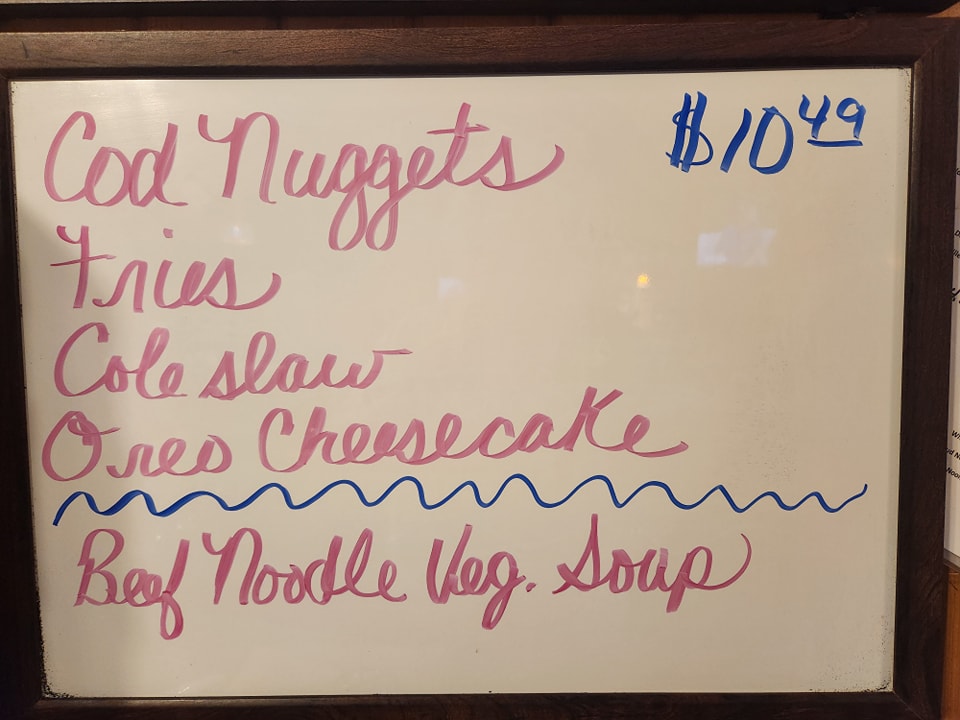 Cod Nuggets $10.49
Fries
Cole slaw
Oreo Cheesecake
Beef Noodle Veg. Soup